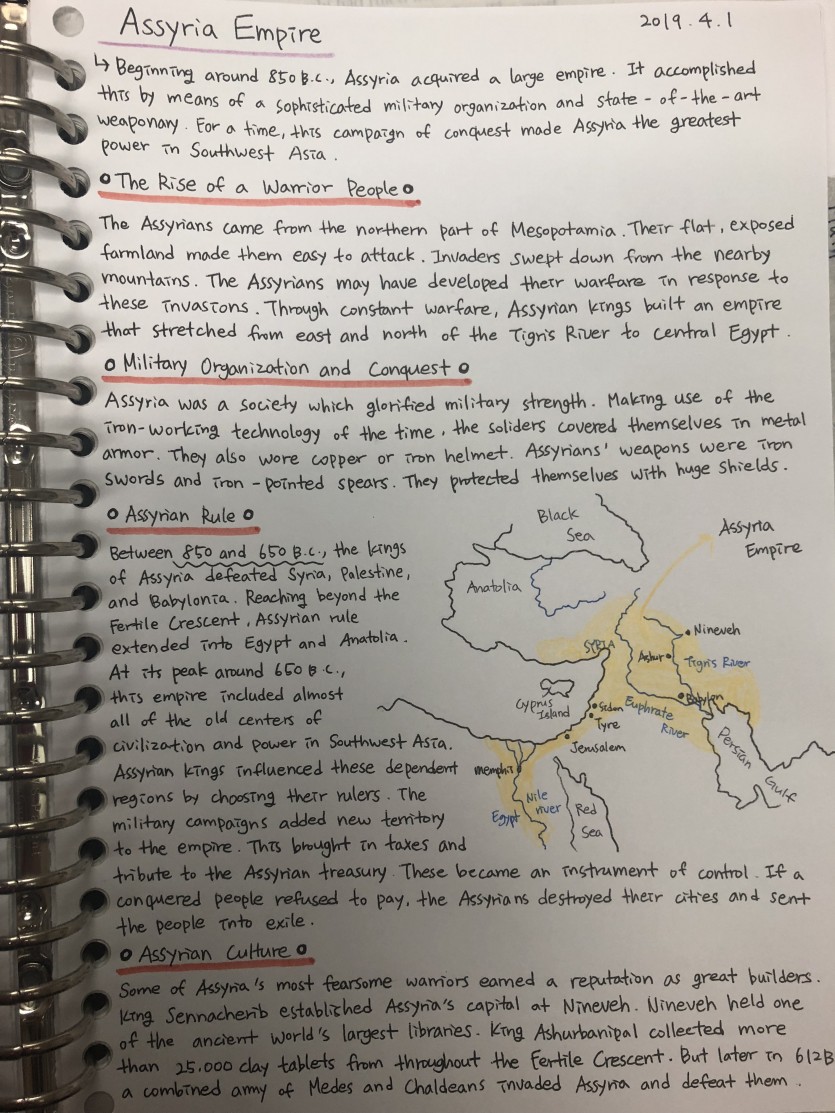 Assyria Empire
2019.4.1
↳ Beginning around 850 B.C., Assyria acquired a large empire. It accomplished
this by means of a sophisticated military organization and state-of-the-art
weaponary. For a time, this campaign of conquest made Assyria the greatest
power in Southwest Asia.
The Rise of a Warrior People
The Assyrians came from the northern part of Mesopotamia. Their flat, exposed
farmland made them easy to attack. Invaders swept down from the nearby
mountains. The Assyrians may have developed their warfare in response to
these invasions. Through constant warfare, Assyrian kings built an empire
that stretched from east and north of the Tigris River to central Egypt.
Military Organization and Conquest
Assyria was a society which glorified military strength. Making use of the
iron-working technology of the time, the soliders covered themselves in metal
armor. They also wore copper or iron helmet. Assyrians' weapons were iron
swords and iron-pointed spears. They protected themselves with huge shields.
Assyrian Rule
Between 850 and 650 B.C., the kings
of Assyria defeated Syria, Palestine,
and Babylonia. Reaching beyond the
Fertile Crescent, Assyrian rule
extended into Egypt and Anatolia.
At its peak around 650 B.C.,
this empire included almost
all of the old centers of
civilization and power in Southwest Asia.
Assyrian kings influenced these dependent
regions by choosing their rulers. The
military campaigns added new territory
to the empire. This brought in taxes and
tribute to the Assyrian treasury. These became an instrument of control. If a
conquered people refused to pay, the Assyrians destroyed their cities and sent
the people into exile.
Black
Sea
Assyria
Empire
Anatolia
SYRIA
Nineveh
Ashur
Tigris River
Babylon
Cyprus
Island
Sidon
Euphrate
River
Tyre
Jerusalem
Persian
Gulf
memphis
Nile
river
Egypt
Red
Sea
Assyrian Culture
Some of Assyria's most fearsome warriors earned a reputation as great builders.
King Sennacherib established Assyria's capital at Nineveh. Nineveh held one
of the ancient world's largest libraries. King Ashurbanipal collected more
than 25,000 clay tablets from throughout the Fertile Crescent. But later in 612B
a combined army of Medes and Chaldeans invaded Assyria and defeat them.